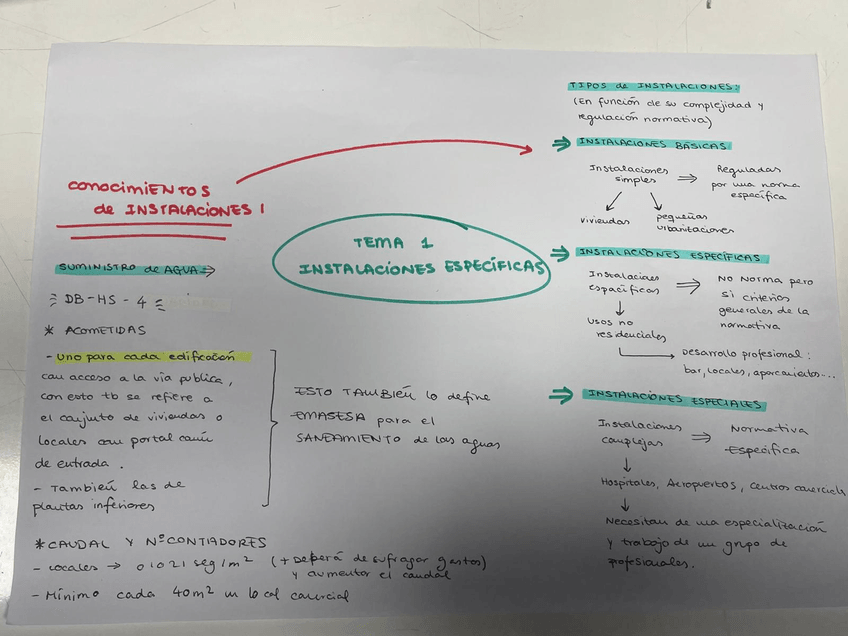 CONOCIMIENTOS
de INSTALACIONES I
SUMINISTRO de AGUA ⇒
DB-HS-4
* ACOMETIDAS
- Uno para cada edificación
con acceso a la vía publica,
con esto tb se refiere a
el conjunto de viviendas o
locales con portal común
de entrada.
- También las de
plantas inferiores
ESTO TAMBIÉN lo define
EMASESA para el
SANEAMIENTO de las aguas
* CAUDAL Y Nº CONTADORES
- Locales → 0'021 seg/m² (+ Deberá de sufragar gastos)
y aumentar el caudal
- Mínimo cada 40m² un local comercial
TEMA 1
INSTALACIONES ESPECÍFICAS
TIPOS de INSTALACIONES:
(En función de su complejidad y
regulación normativa)
⇒ INSTALACIONES BÁSICAS
Instalaciones simples ⇒ Reguladas por una norma específica
viviendas
pequeñas urbanizaciones
⇒ INSTALACIONES ESPECÍFICAS
Instalaciones específicas ⇒ NO NORMA pero si criterios generales de la normativa
↓
Usos no residenciales
→ Desarrollo profesional:
bar, locales, aparcamientos...
⇒ INSTALACIONES ESPECIALES
Instalaciones complejas ⇒ Normativa Específica
↓
Hospitales, Aeropuertos, Centros comerciales
↓
Necesitan de una especialización
y trabajo de un grupo de
profesionales.